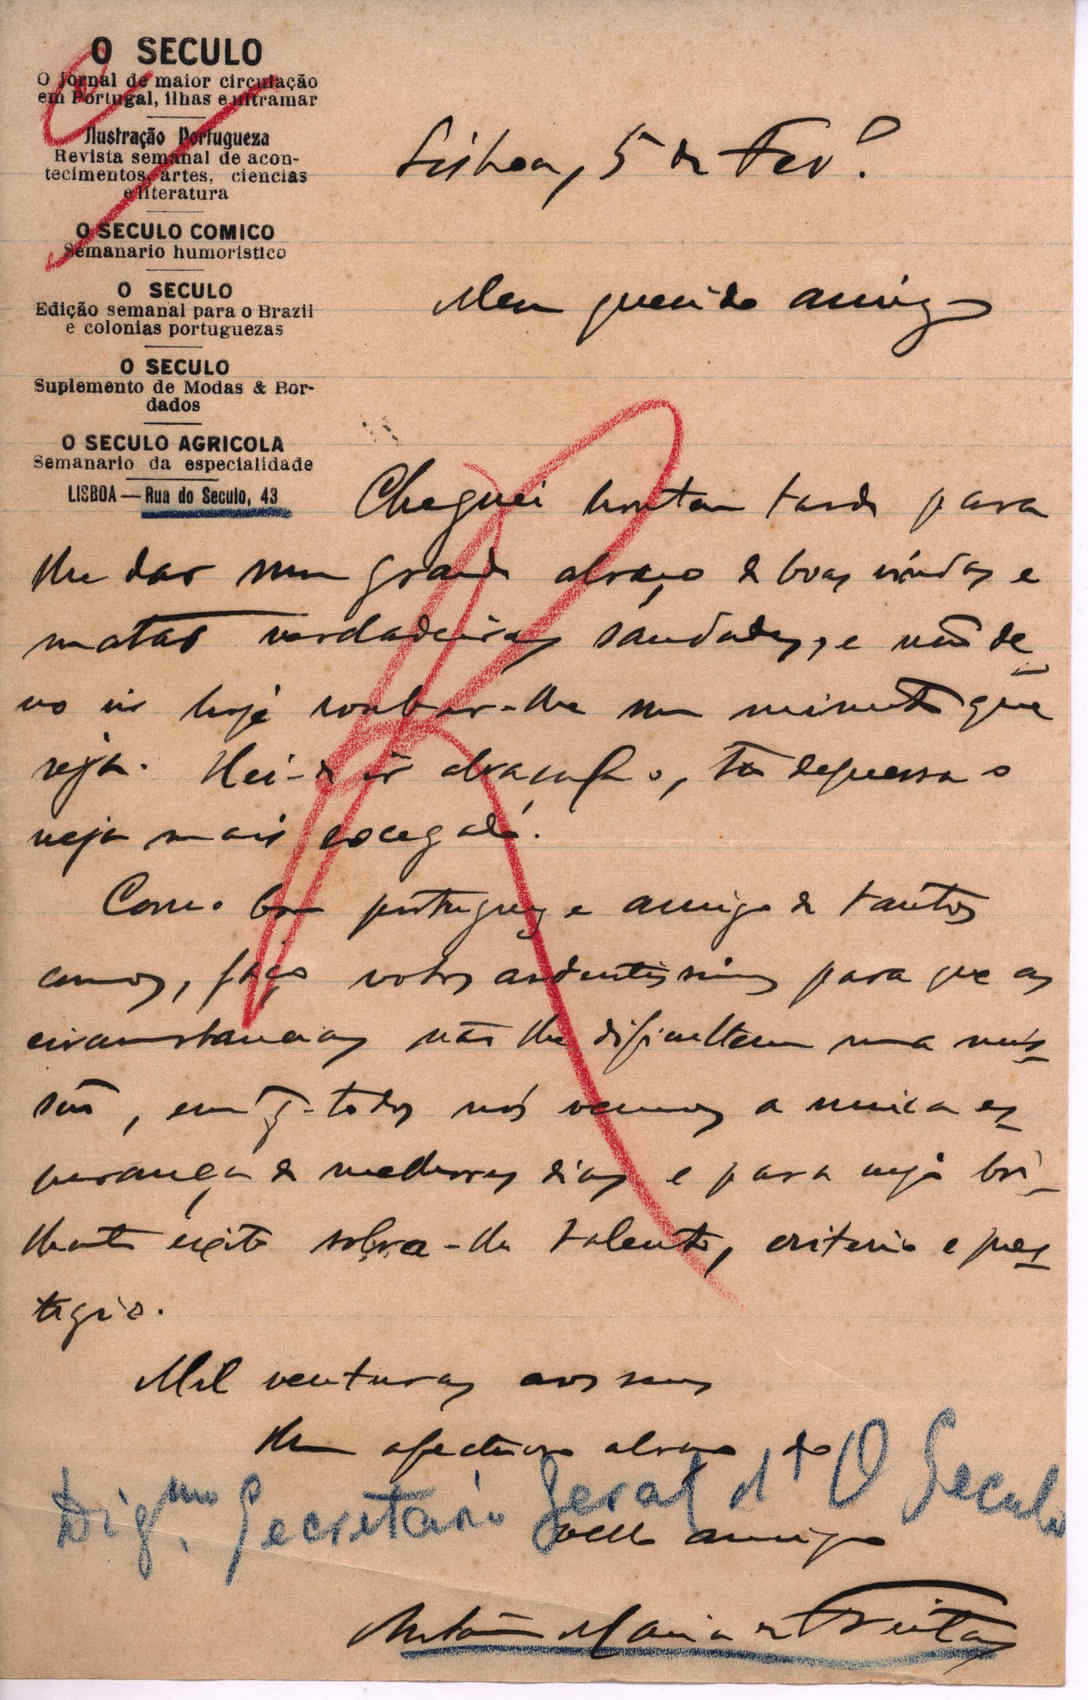 O SECULO
O jornal de maior circulação
em Portugal, ilhas e ultramar
Ilustração Portugueza
Revista semanal de acon-
tecimentos, artes, ciencias
e literatura
O SECULO COMICO
Semanario humoristico
O SECULO
Edição semanal para o Brazil
e colonias portuguezas
O SECULO
Suplemento de Modas & Bor-
dados
O SECULO AGRICOLA
Semanario da especialidade
LISBOA — Rua do Seculo, 43
Lisboa, 5 de Fevº.
Meu querido amigo
Cheguei hontem tarde para
lhe dar um grande abraço de boas vindas e
matar verdadeiras saudades, e não de-
vo ir hoje roubar-lhe um minuto que
seja. Hei-de ir abraçal-o, depressa o
veja mais socegado.
Como bom portuguez e amigo de tantos
annos, faço votos ardentissimos para que as
circumstancias não lhe dificultem uma mis-
são, em q. todos nós vemos a unica es-
perança de melhores dias e para cujo bri-
lhante exito sobra-lhe talento, criterio e pres-
tigio.
Mil venturas aos seus
Um afectuoso abraço do
Dig.mo Secretário Geral d' O Seculo
velho amigo
Antonio Maria de Freitas